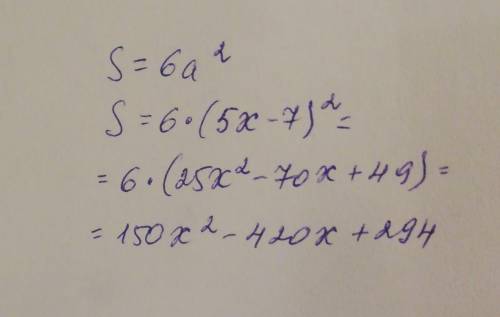 S = 6a²
S = 6·(5x-7)² =
= 6·(25x²-70x+49) =
= 150x²-420x+294